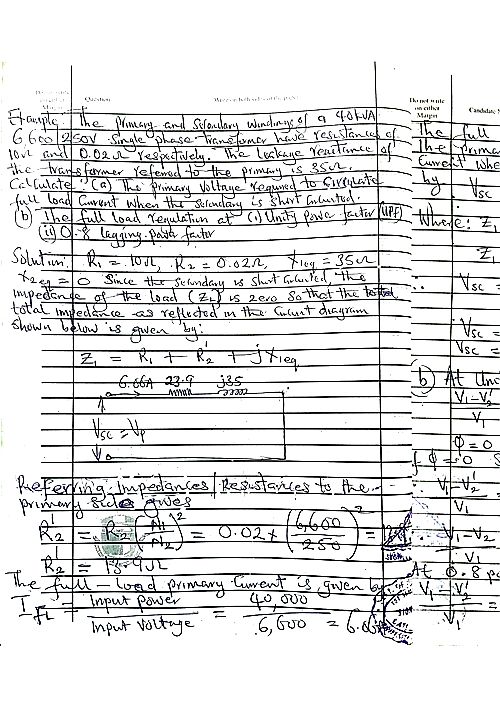 Do not write
on either
Margin
Question
Write on both sides of the paper
Example: The primary and secondary windings of a 40kVA
6600/250V single phase transformer have resistances of
10Ω and 0.02Ω respectively. The leakage reactance of
the transformer referred to the primary is 35Ω.
Calculate: (a) The primary voltage required to circulate
full load current when the secondary is short circuited.
(b) The full load regulation at (i) Unity power factor (UPF)
(ii) 0.8 lagging power factor
Solution: R1 = 10Ω, R2 = 0.02Ω, X1eq = 35Ω
X2eq = 0 Since the secondary is short circuited, the
impedance of the load (ZL) is zero so that the
total impedance as reflected in the circuit diagram
shown below is given by:
Z1 = R1 + R2' + jX1eq
6.06A 23.9 j35
Vsc = Vp
Referring Impedances/Resistances to the
primary side gives
R2' = R2 (N1/N2)² = 0.02 × (6,600/250)² =
R2' = 13.9Ω
The full-load primary current is given by
IFL = Input power/Input voltage = 40,000/6,600 = 6.06
Do not write
on either
Margin
Candidate
The full
The prima
Current whe
by
Vsc
Where: Z1
Z1
∴ Vsc =
Vsc =
Vsc =
(b) At Uni
V1 - V2'
V1
Φ = 0
if Φ = 0 S
∴ V1 - V2'
V1
V1 - V2
V1
At 0.8 p
V1 - V2' =
V1